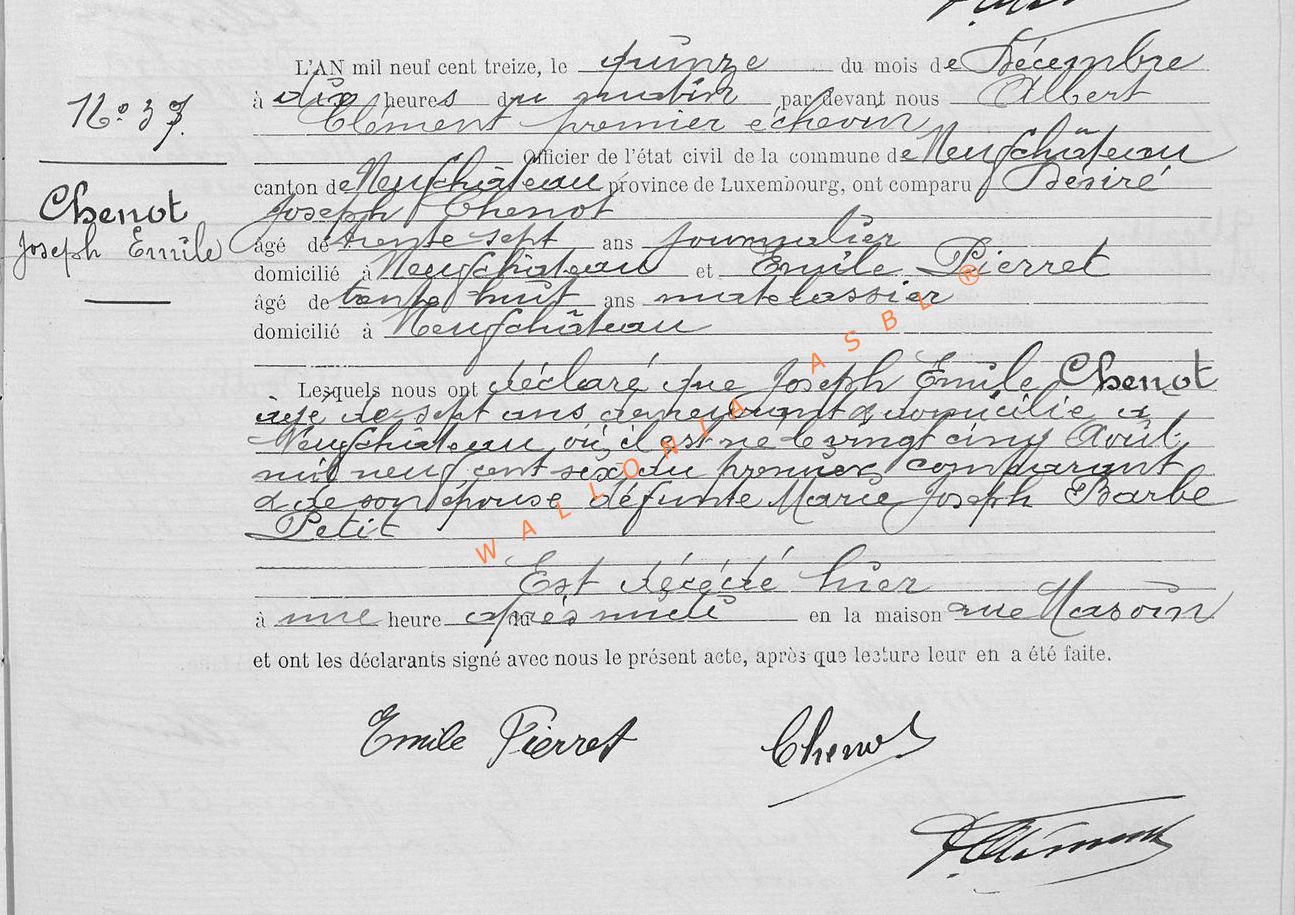 L'AN mil neuf cent treize, le quinze du mois de Décembre
à dix heures du matin par devant nous Albert
Clément premier échevin
Officier de l'état civil de la commune de Neufchâteau
canton de Neufchâteau province de Luxembourg, ont comparu Désiré
Joseph Chenot
âgé de trente sept ans journalier
domicilié à Neufchâteau et Emile Pierret
âgé de trente huit ans matelassier
domicilié à Neufchâteau
Lesquels nous ont déclaré que Joseph Emile Chenot
âgé de sept ans demeurant & domicilié à
Neufchâteau où il est né le vingt cinq Août
mil neuf cent six du premier comparant
& de son épouse défunte Marie Joseph Barbe
Petit
Est décédé hier
à une heure après midi en la maison rue Masoin
et ont les déclarants signé avec nous le présent acte, après que lecture leur en a été faite.
N° 37.
Chenot
Joseph Emile
Emile Pierret Chenot
AClément
WALLONIA ASBL ®